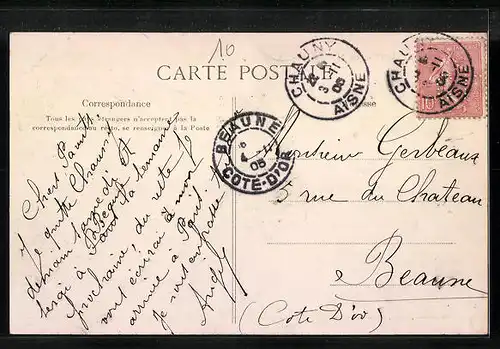 10
CARTE POSTALE
Correspondance
Tous les pays étrangers n'acceptent pas la
correspondance au recto, se renseigner à la Poste
CHAUNY
AISNE
3 -11
05
CHAUNY
AISNE
BEAUNE
COTE-D'OR
05
10
Chers Parents
Je quitte Chauny
demain samedi et
serai à
avant la semaine
prochaine, du reste je
vous écrirai à mon
arrivée à Paris.
Je vous embrasse
Monsieur Gerbeaux
5 rue du Chateau
Beaune
(Cote D'or)